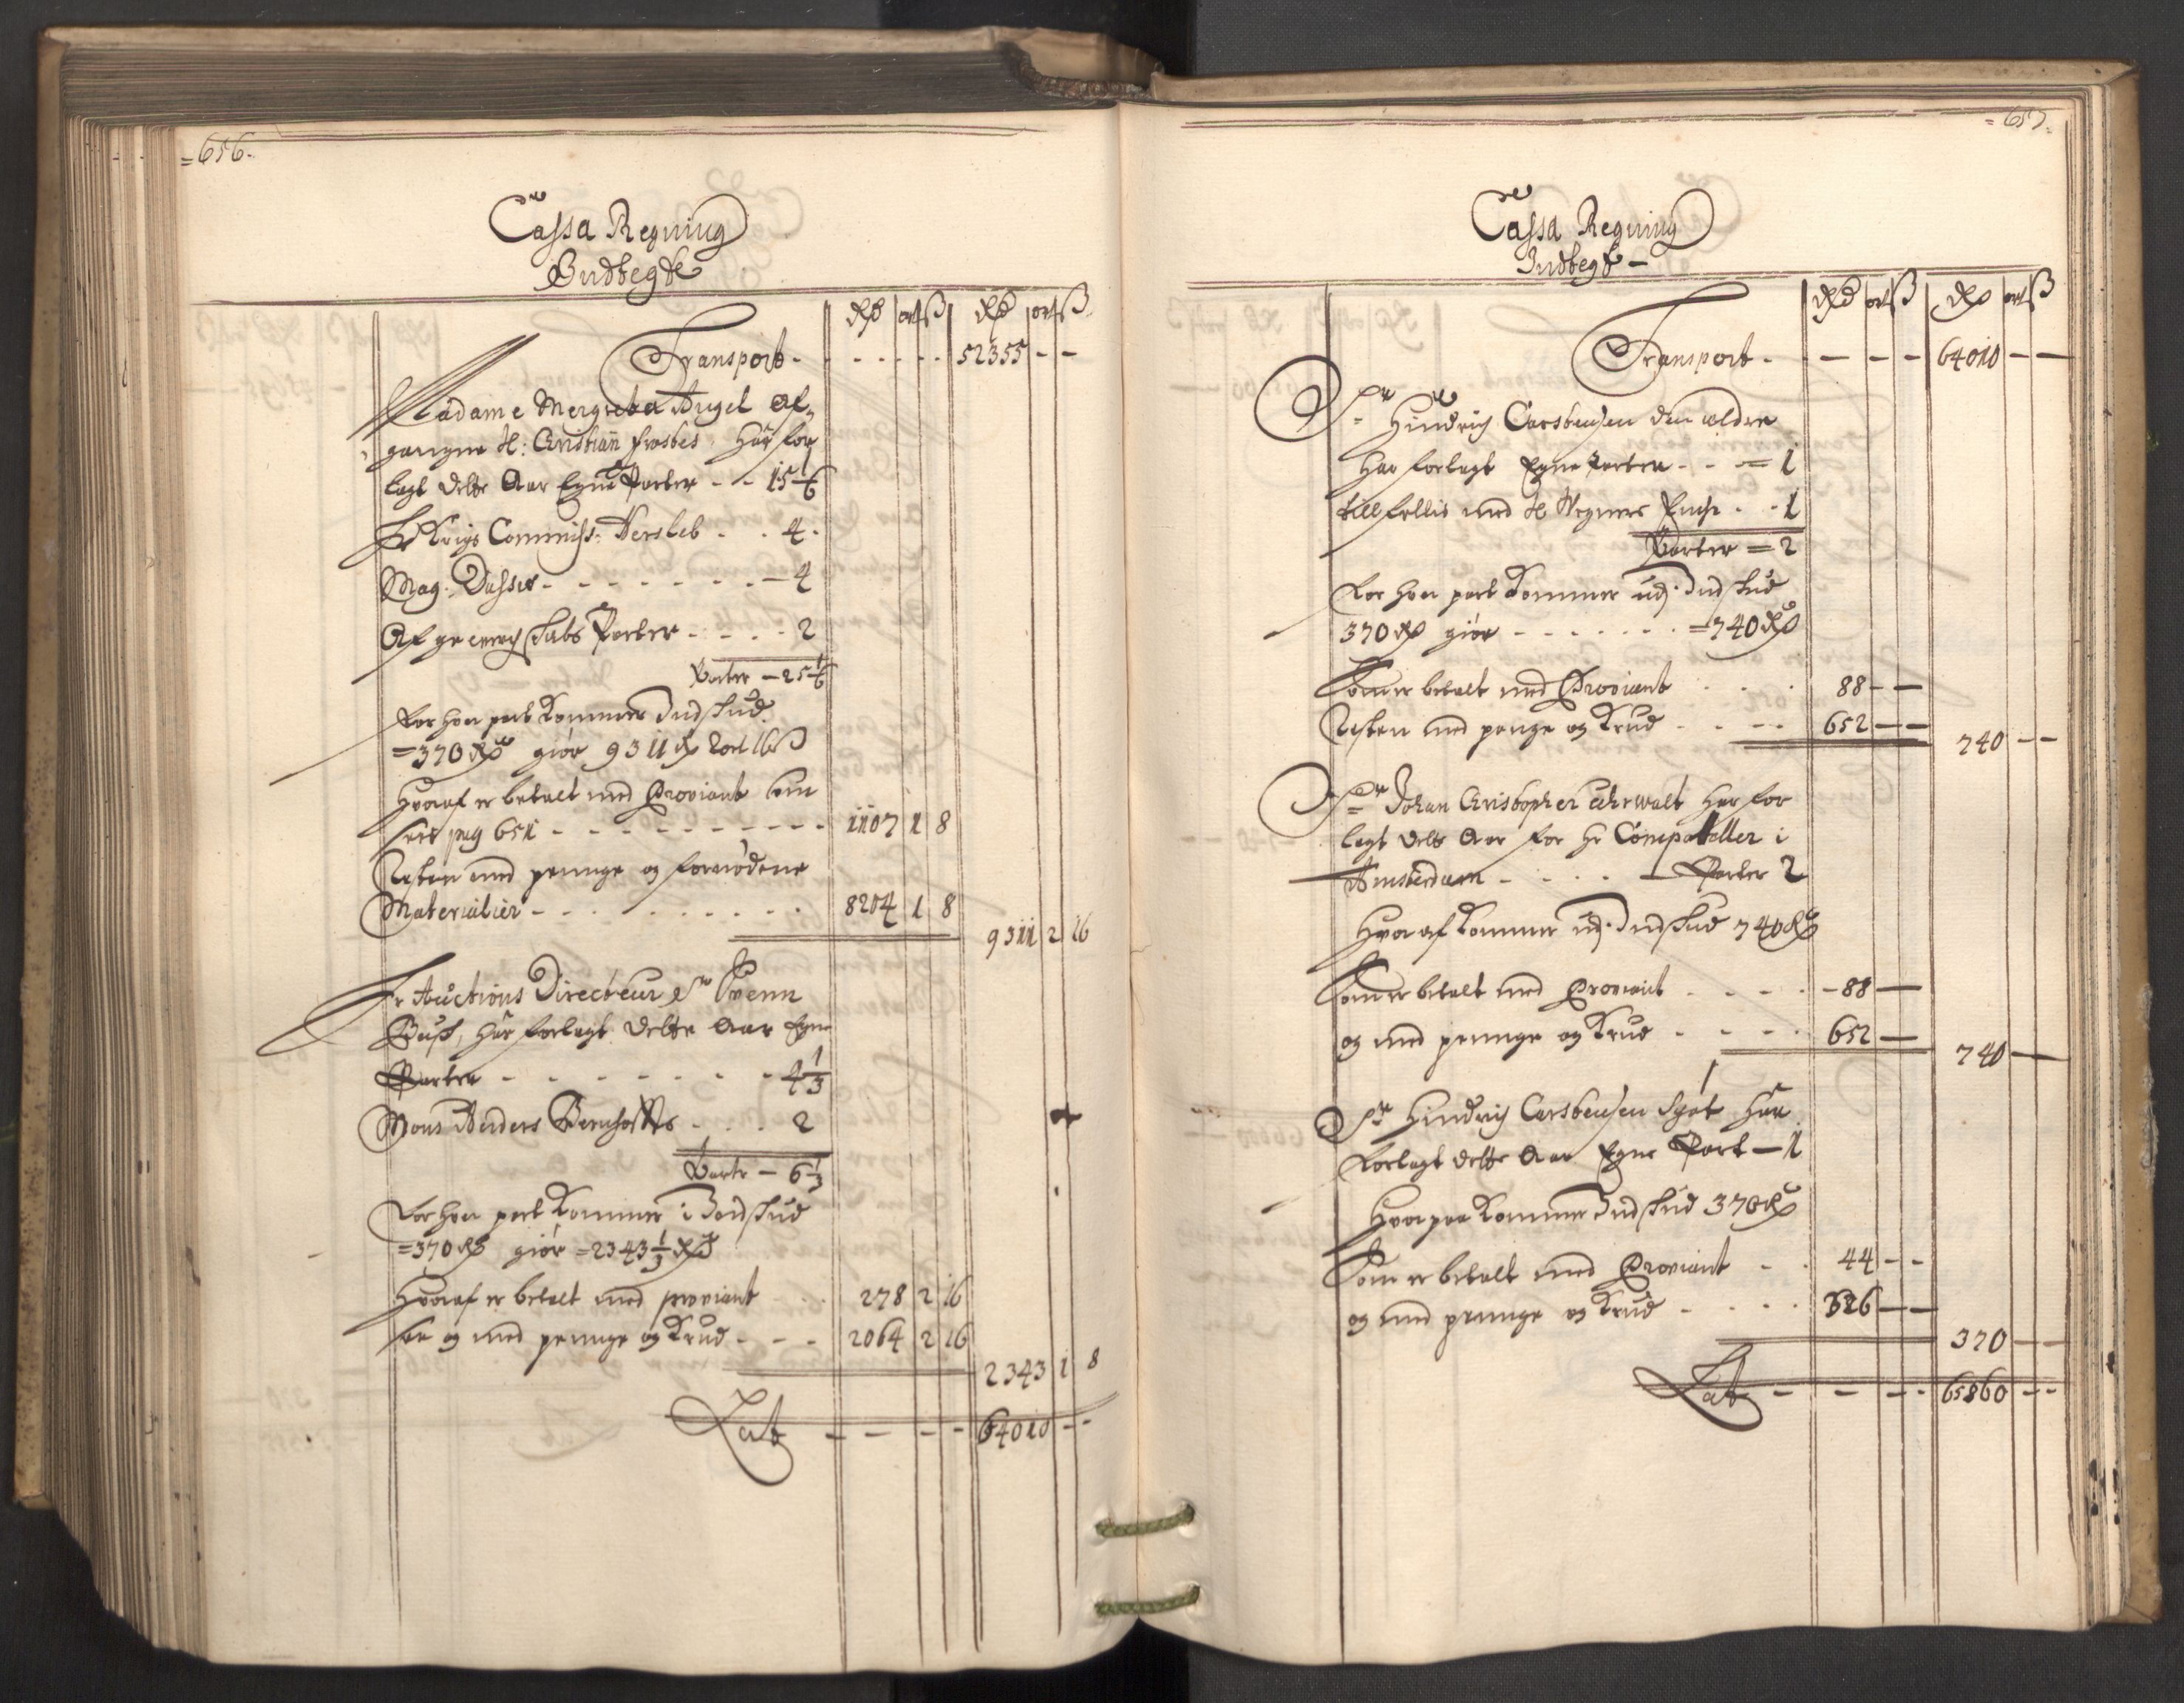 =656.
Cassa Regning
Indtegt
Rd ort ß Rd ort ß
Transport - - - - - 52355 - -
Madame Margreta Angel af=
gangne H: Christian Frosbes, har for
lagt dette Aar Egne Parter - - 15 1/6
Hr Krigs Commiss: Hersleb - - 4 -
Mag. Dasse - - - - - - - 4
Afgr Parter - - - - 2
Parter - 25 1/6
For hver part kommer Indskud
=370 Rd giør 9311 Rd 2 ort 16 ß
Hvoraf er betalt med Proviant som
sees pag 651 - - - - - - - - - 1107 1 8
Resten med penge og fornødene
Materialier - - - - - - - 8204 1 8
9311 2 16
Hr Auctions Directeur Sr Svenn
Busch, har forlagt dette Aar Egne
Parter - - - - - - - 4 1/3
Mons Anders - - - 2
Parter - 6 1/3
For hver part kommer i Indskud
=370 Rd giør =2343 1/3 Rd
Hvoraf er betalt med proviant - - 278 2 16
og med penge og Krud - - - 2064 2 16
2343 1 8
Lat - - - - 64010 - -
=657.
Cassa Regning
Indtegt -
Rd ort ß Rd ort ß
Transport - - - - 64010 - -
Sr Hindrich Carstensen den ældre
har forlagt Egne Parter - - = 1
till fellis med H Wegners Enche - - 1
Parter = 2
For hver part kommer udj Indskud
370 Rd giør - - - - - - =740 Rd
Som er betalt med Proviant - - - 88 - -
Resten med penge og Krud - - - - 652 - -
740 - -
Sr Johan Christopher Uhrwalt har for
lagt dette Aar for hr i
Amsterdam - - - - - Parter 2
Hvoraf kommer udj Indskud 740 Rd
Som er betalt med Proviant - - - - 88 -
og med penge og Krud - - - - 652 -
740 -
Sr Hindrich Carstensen har
forlagt dette Aar Egne Part - 1
Hvorpaa kommer Indskud 370 Rd
Som er betalt med Proviant - - 44 - -
og med penge og Krud - - - - 326 - -
370 - -
Lat - - - - 65860 - -